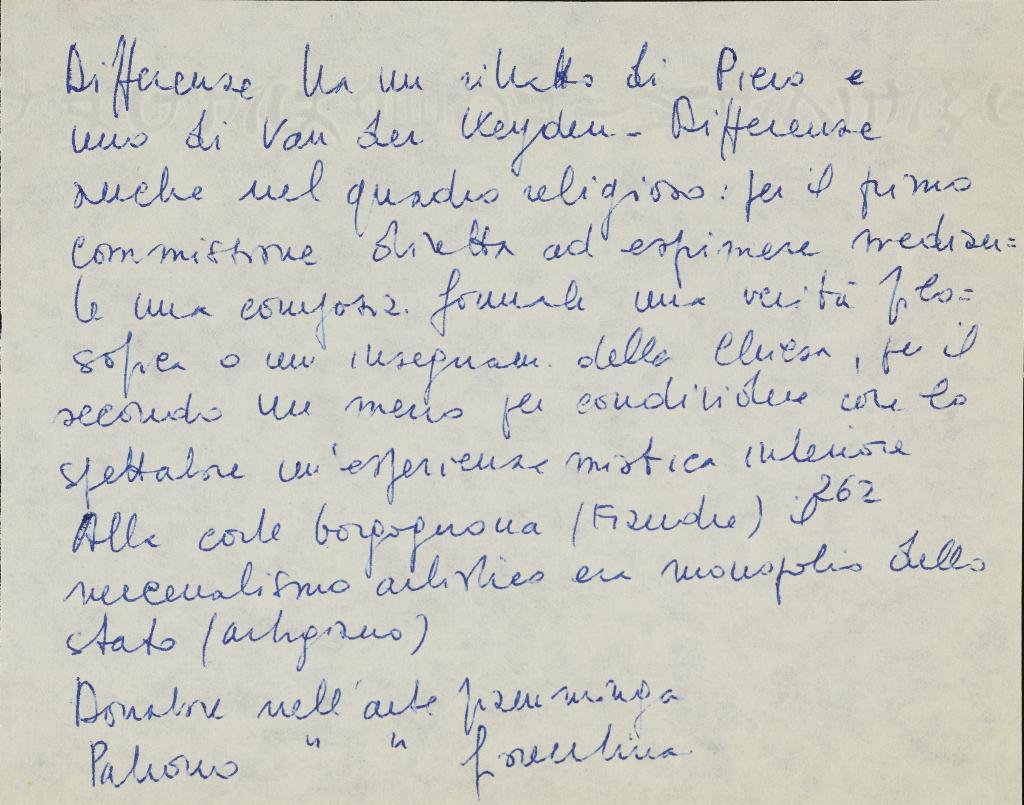 Differenze tra un ritratto di Piero e
uno di Van der Weyden - Differenze
anche nel quadro religioso: per il primo
commissione diretta ad esprimere median=
te una composiz. formale una verità filo=
sofica o un insegnam. della Chiesa, per il
secondo un mezzo per condividere con lo
spettatore un'esperienza mistica interiore
262
Alla corte borgognona (Fiandre) il
mecenatismo artistico era monopolio dello
stato (artigiano)
Donatore nell'arte fiamminga
Patrono " " fiorentina